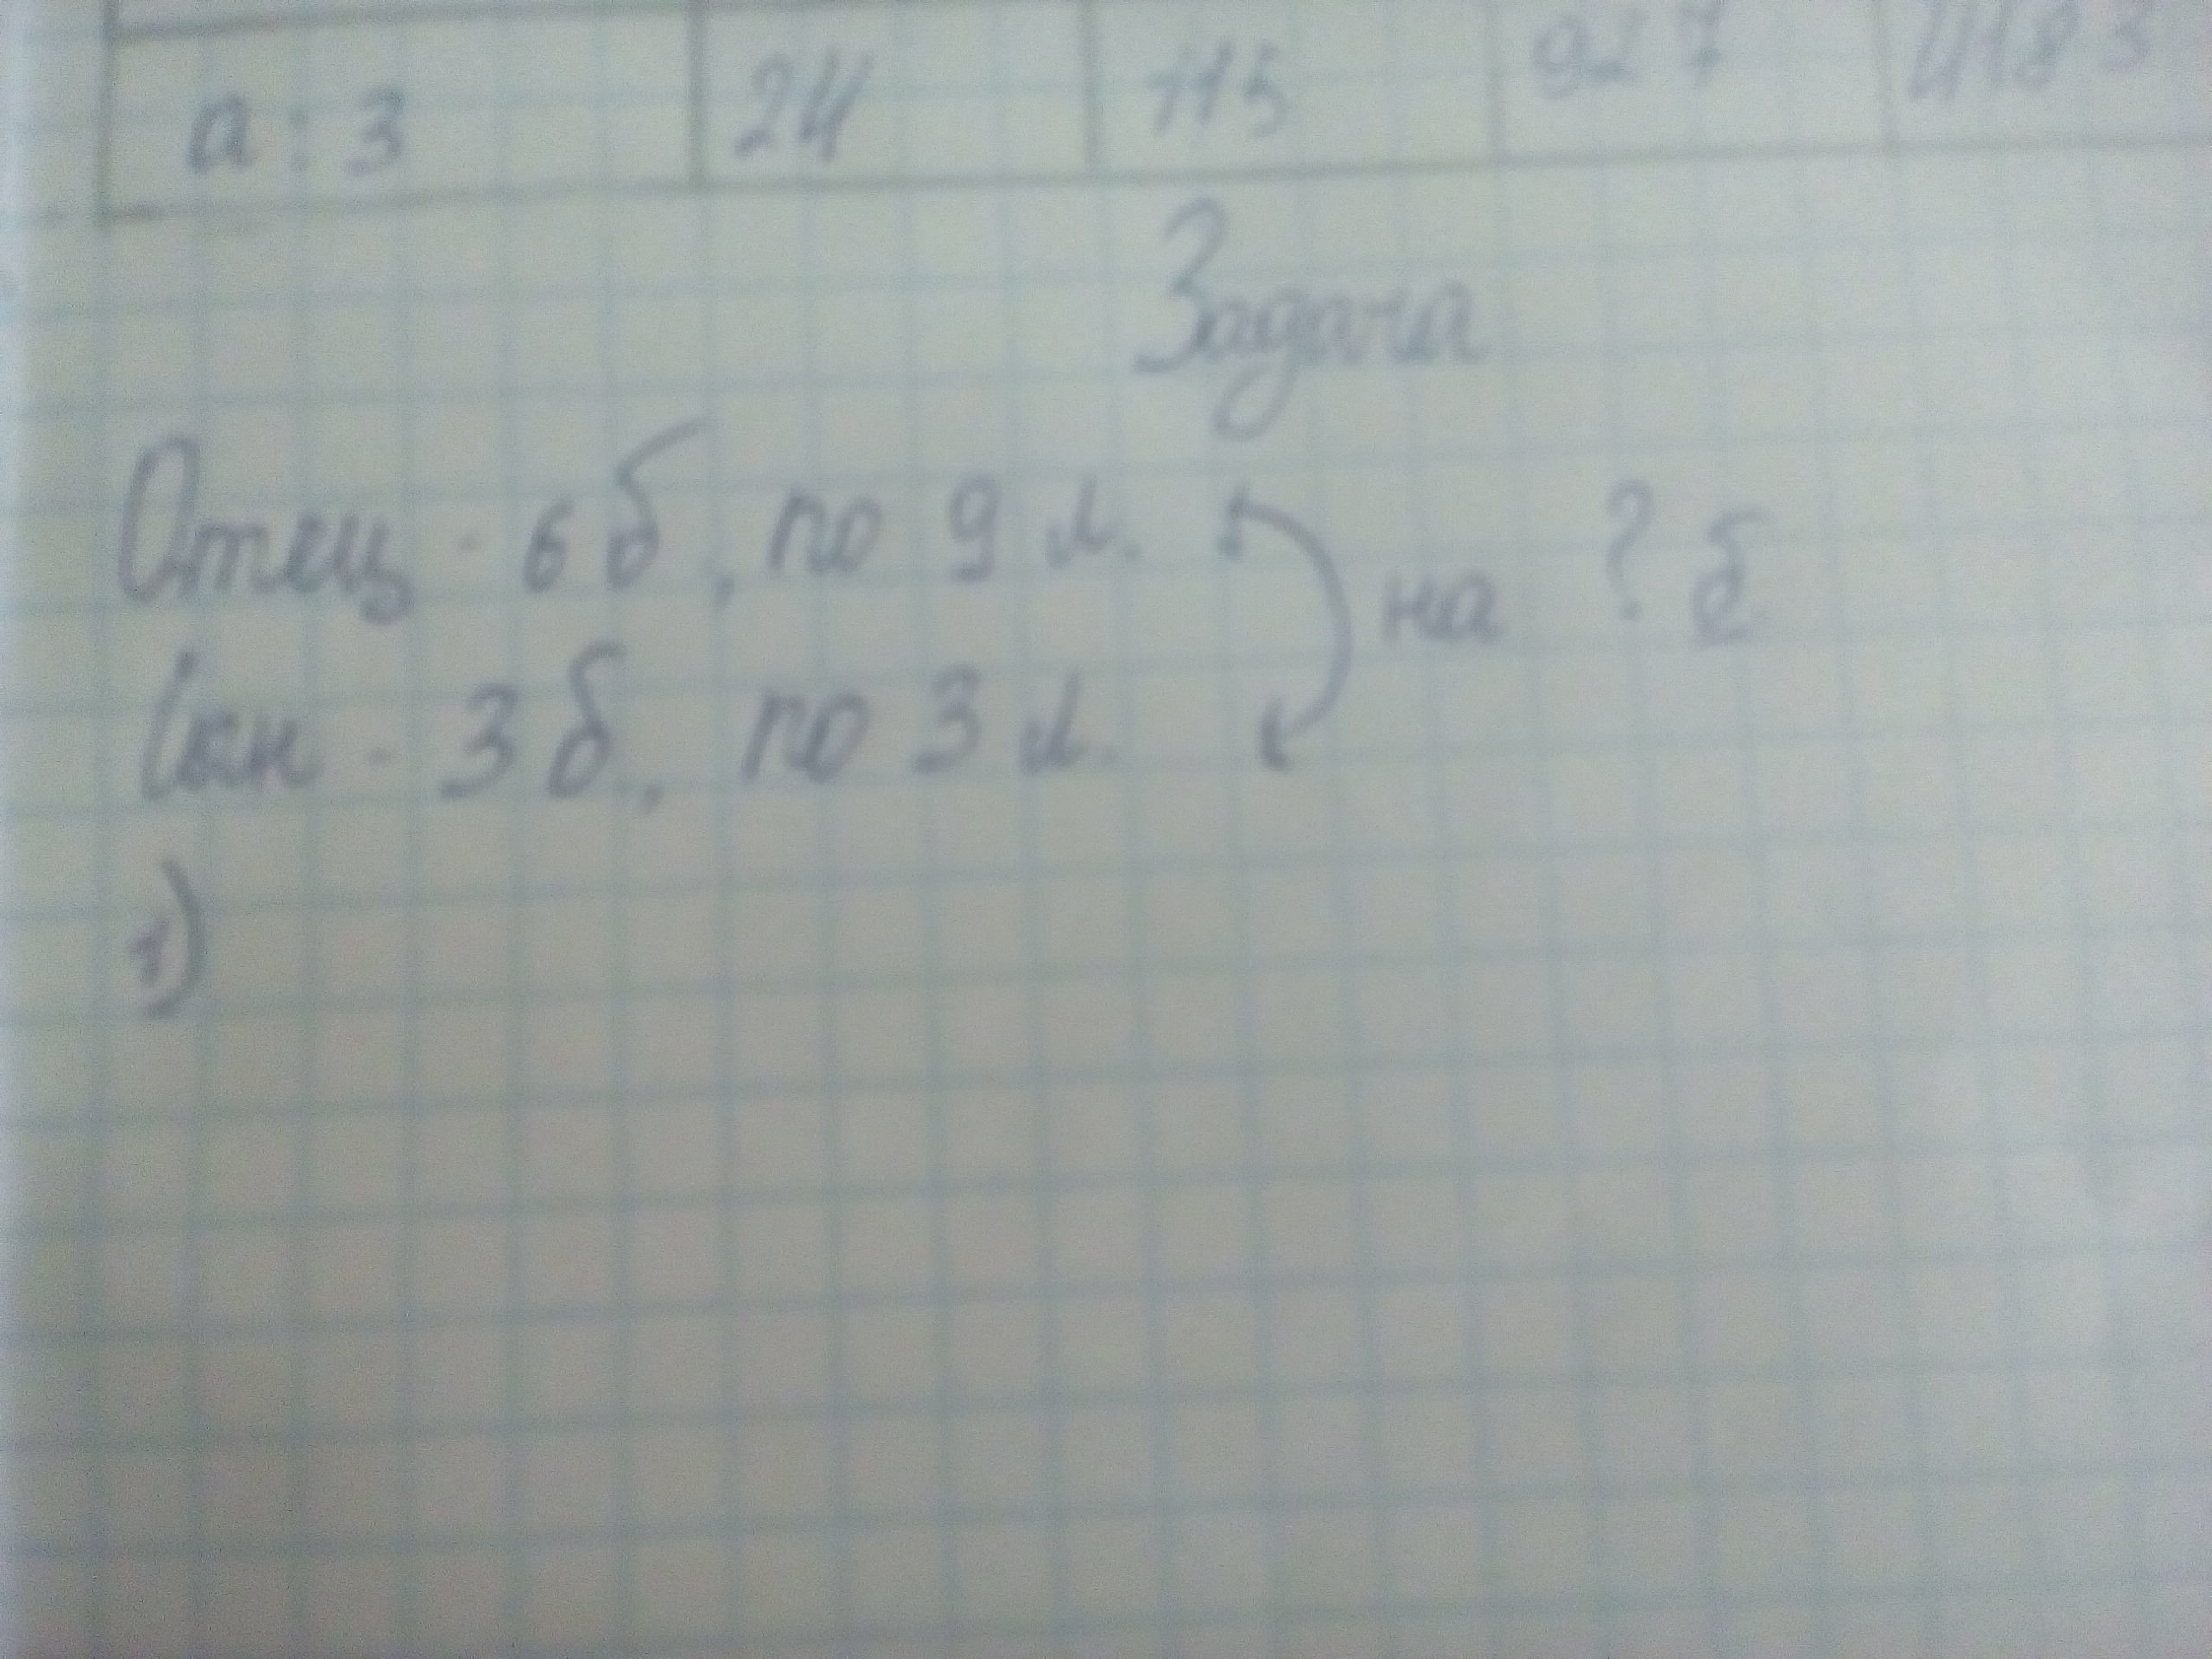 a : 3 24 115 927 4183
Задача
Отец - 6 б, по 9 л. на ? б
Сын - 3 б, по 3 л.
1)